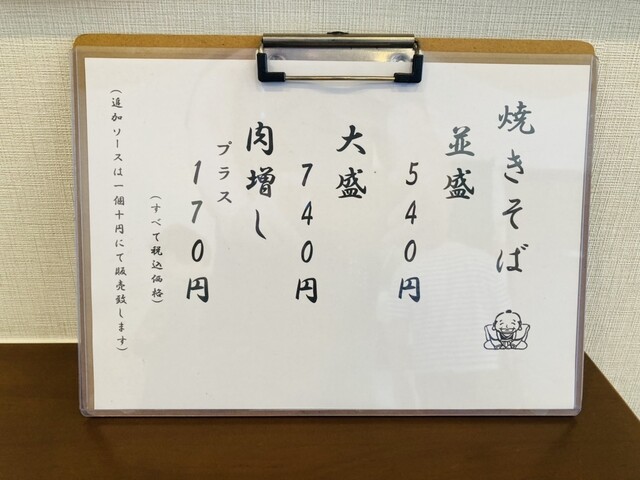 焼きそば
並盛
540円
大盛
740円
肉増し
プラス
170円
(すべて税込価格)
(追加ソースは一個十円にて販売致します)